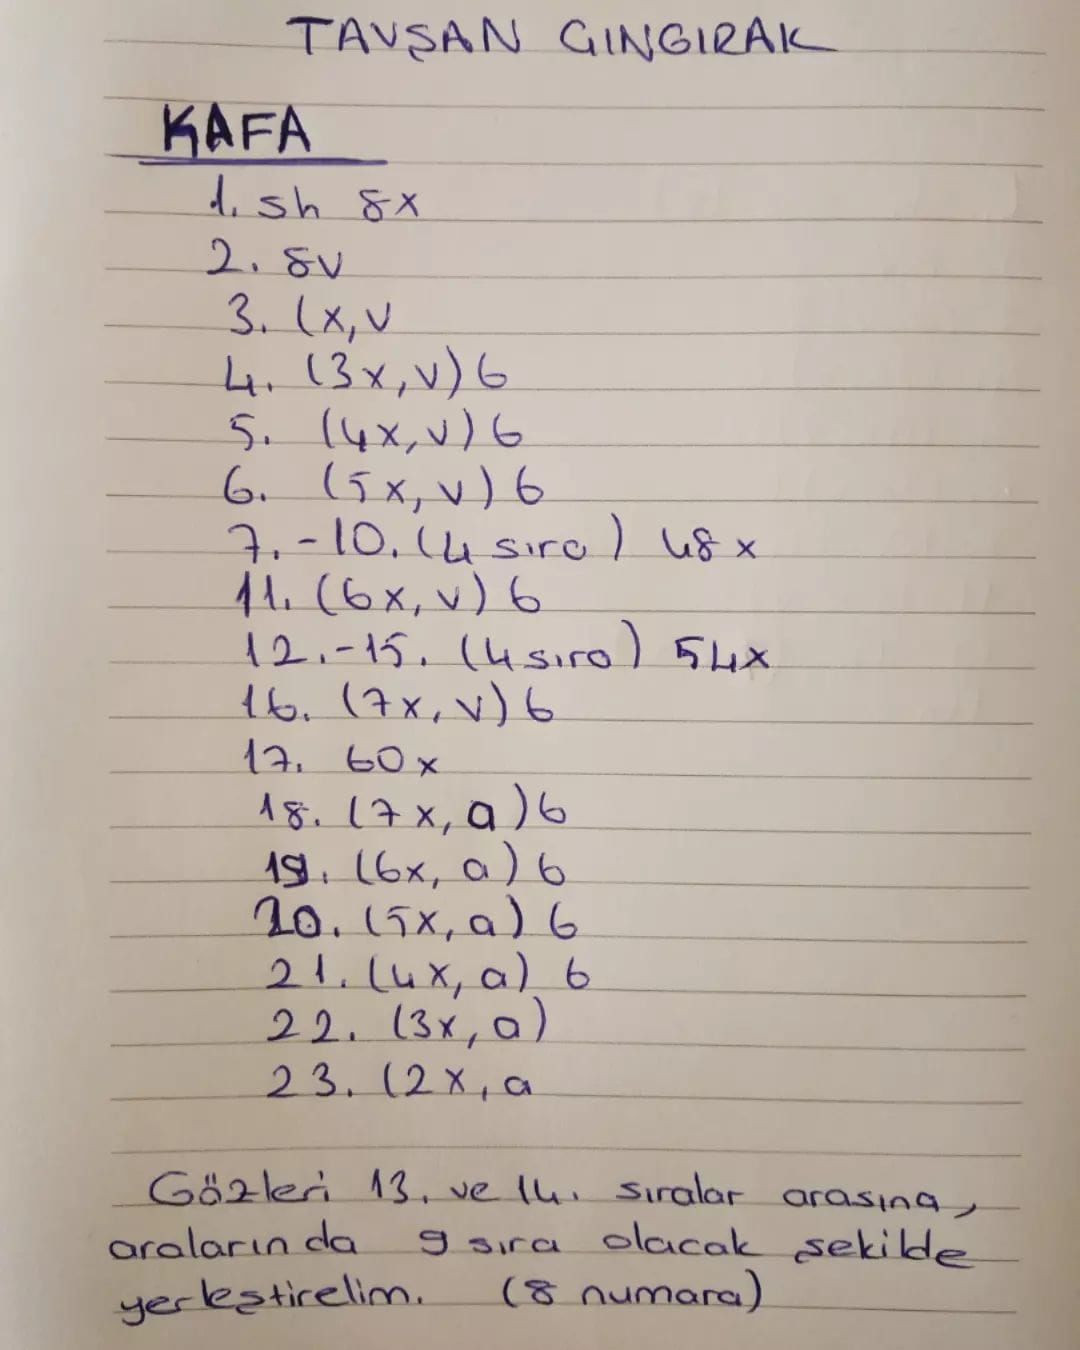 TAVŞAN GINGIRAK
KAFA
1. sh 8x
2. 8v
3. (x,v
4. (3x,v)6
5. (4x,v)6
6. (5x,v)6
7.-10. (4 sıra) 48x
11. (6x,v)6
12.-15. (4 sıra) 54x
16. (7x,v)6
17. 60x
18. (7x,a)6
19. (6x,a)6
20. (5x,a)6
21. (4x,a)6
22. (3x,a)
23. (2x,a
Gözleri 13. ve 14. sıralar arasına,
aralarında 9 sıra olacak şekilde
yerleştirelim. (8 numara)